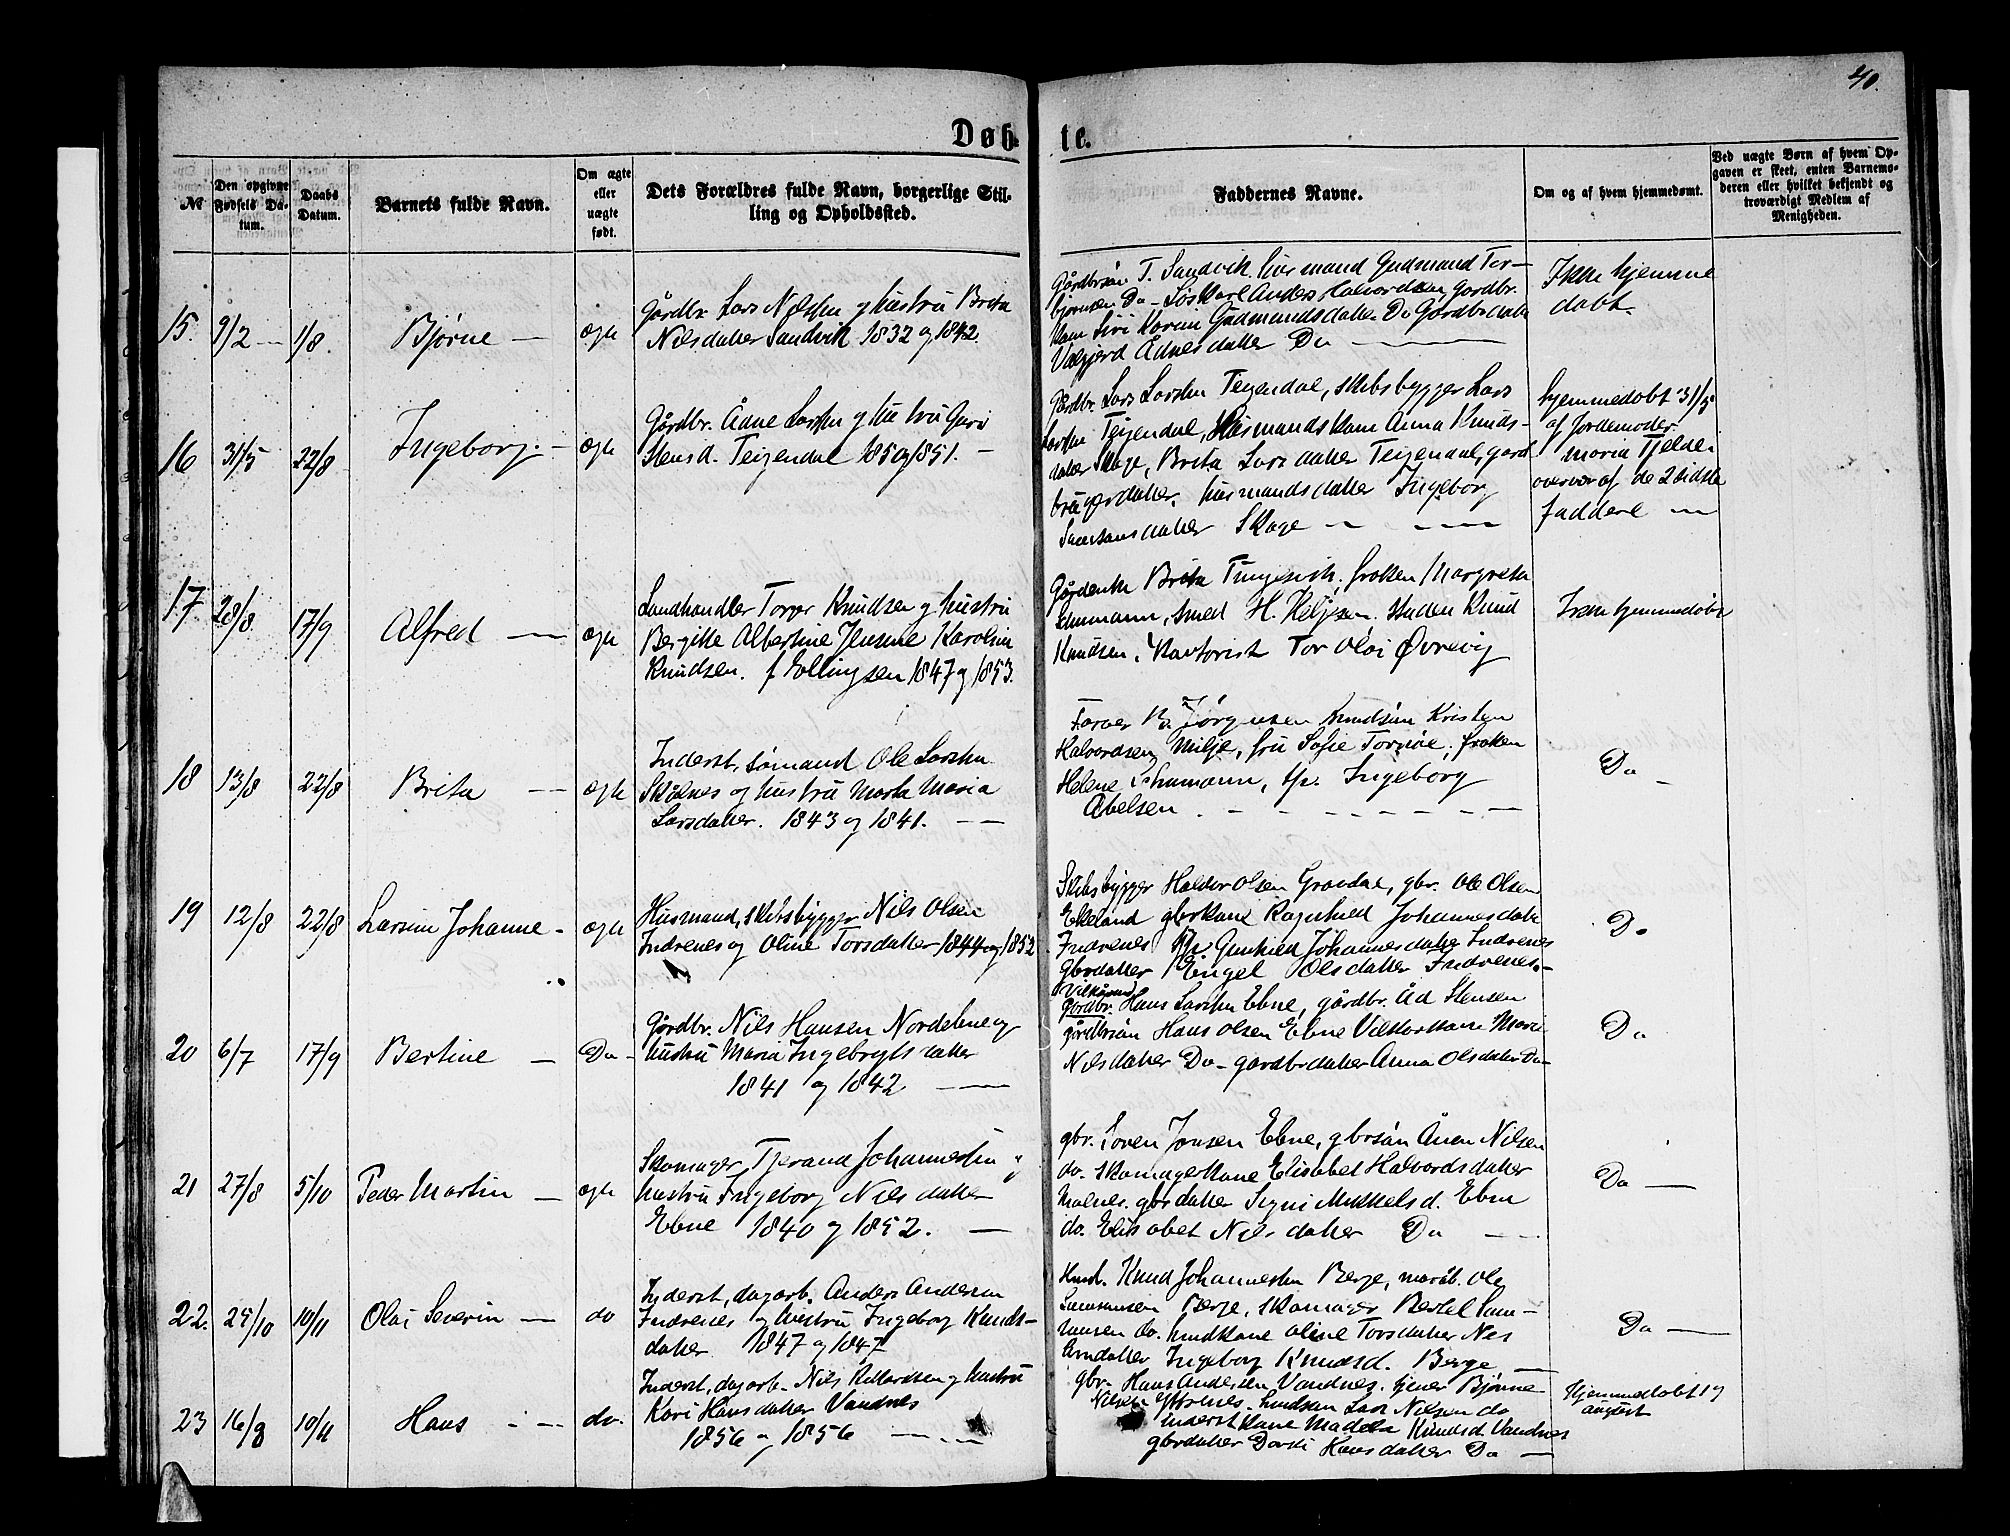 40.
Døb- te.
№
Den opgivne Fødsels Da-tum.
Daabs Datum.
Barnets fulde Navn.
Om ægte eller uægte født.
Dets Forældres fulde Navn, borgerlige Stil-
ling og Opholdssted.
Faddernes Navne.
Om og af hvem hjemmedøbt.
Ved uægte Børn af hvem Op-
gaven er skeet, enten Barnemo-
deren eller hvilket bekjendt og
troværdigt Medlem af
Menigheden.
15. 9/2 1/8. Bjørne ægte
Gårdbr. Lars Nilssen og hustru Brita
Nilsdatter Sandvik 1832 og 1842.
T. Sandvik. husmand Gudmand Tor-
bjørnsen Do- Anders Halvordsen gårdbr.
kone Siri Karine Gudmundsdatter Do
Ådnesdatter Do
hjemme
døbt.
16 31/5 22/8 Ingeborg. ægte
Gårdbr. Ådne Larssen og hustru Guri
Stensd. Teigendal 1850 og 1851.
Gårdbr. Lars Larssen Teigendal, skibsbygger Lars
Larssen Teigendal, Husmandskone Anna Knuds-
datter Skage, Brita Larsdatter Teigendal, gård-
brugerdatter. husmandsdatter Ingeborg
Samsonsdatter Skage
hjemmedøbt 31/5
af Jordemoder
Maria Tjelde.
overvær af de 2 sidste
faddere
17 28/8 17/9 Alfred ægte
Landhandler Torger Knudsen og hustru
Bergitte Albertine Jensine Karoline
Knudsen. f Ellingsen 1847 og 1853.
Brita frøken Margreta
smed H. Knud
Knudsen. Kontorist Tor Olai Øvrevig
hjemmedøbt
18 13/8 22/8 Brita ægte
Inderst, sømand Ole Larssen
Skålnes og hustru Marta Maria
Larsdatter. 1843 og 1841.
Farver B. Jörgensen Kristen
Halvordsen Milje, fru Sofie Tornøe, frøken
Helene p. Ingeborg
Abelsen
Do
19 12/8 22/8 Larsine Johanne ægte
Husmand, skibsbygger Nils Olsen
Indrenes og Oline Torsdatter 1844 og 1852
Skibsbygger Haldor Olsen gbr. Ole Olsen
Ekeland gbrkone Ragnhild Johannesdatter
Indrenes p. Gunhild Johannesdatter Indrenes
gbrdatter Engel Olsdatter Indrenes
Do
20 6/7 17/9 Bertine Do
Gårdbr. Nils Hansen Nordebne og
hustru Maria Ingebrygtsdatter
1841 og 1842
Vilkårmd
Gårdbr. Hans Larssen Ebne, gårdbr. Åd Stensen
gårdbrsön Hans Olsen Ebne Vilkårkone Maria
Nilsdatter Do- gårdbrdatter Anna Olsdatter Do
Do
21 27/8 5/10 Peder Martin ægte
Skomager Tjerand Johannessen og
hustru Ingeborg Nilsdatter
Ebne 1840 og 1852.
gbr. Soren Jonsen Ebne, gbrsön Ånen Nilsen
do. skomagerkone Elisabet Halvordsdatter
Malnes. gbrdatter Signi Mikkelsd. Ebne
do. Elisabet Nilsdatter Do
Do
22. 24/10 10/11 Olai Severin do
Inderst, dagarb. Anders Andersen
Indrenes og hustru Ingeborg Knuds-
datter 1847 og 1847
Knud Johannessen Berge, Ole
Samsonsen Berge, skomager Bertel Sam-
sonsen do. Oline Torsdatter Nes
Ingeborg Knudsd. Berge
Do
23 16/8 10/11 Hans do.
Inderst, dagarb. Nils og hustru
Kari Hansdatter Vandnes
1856 og 1856
gbr. Hans Andersen Vandnes. tjener Bjørne
Nilsen Lars Nilsen do
Inderst Kone Madela Knudsd. Vandnes
gbrdatter Hansdatter Do
Hjemmedøbt 17
august